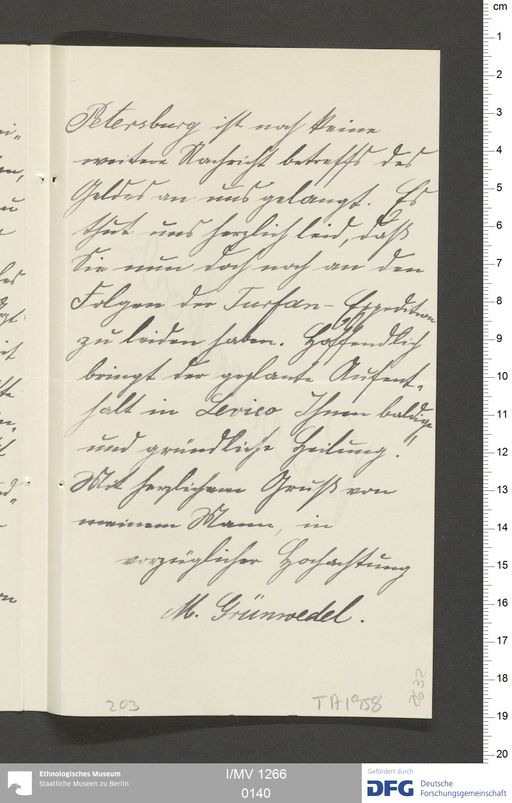 Petersburg ist noch keine
weitere Nachricht betreffs des
Geldes an uns gelangt. Es
thut uns herzlich leid, daß
Sie nun doch noch an den
Folgen der Turfan-Expedition
zu leiden haben. Hoffendlich
bringt der geplante Aufent-
halt in Levico Ihnen baldige
und gründliche Heilung.
Mit herzlichem Gruß von
meinem Mann, in
vorzüglicher Hochachtung
M. Grünwedel.
203
TA 1958
2632
cm
1
2
3
4
5
6
7
8
9
10
11
12
13
14
15
16
17
18
19
20
Ethnologisches Museum
Staatliche Museen zu Berlin
I/MV 1266
0140
Gefördert durch
DFG Deutsche
Forschungsgemeinschaft